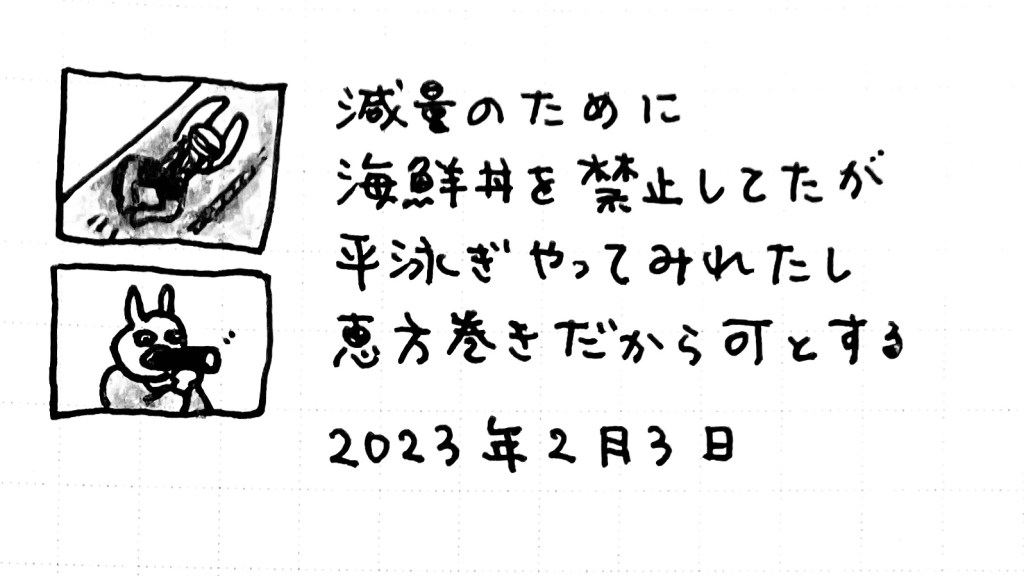 減量のために
海鮮丼を禁止してたが
平泳ぎやってみれたし
恵方巻きだから可とする
2023年2月3日